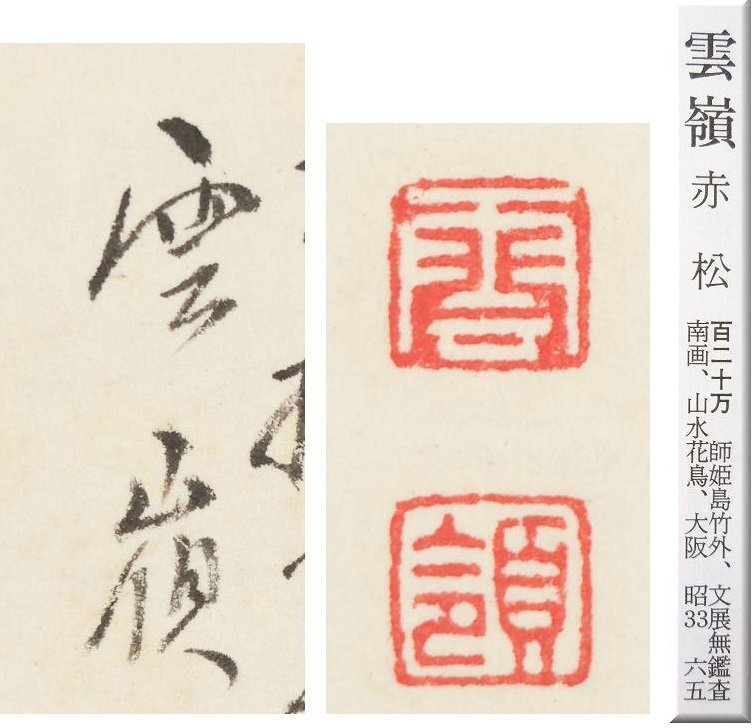 雲嶺
雲
領
雲嶺 赤松
百二十万 師姫島竹外、文展無鑑査
南画、山水花鳥、大阪 昭33 六五